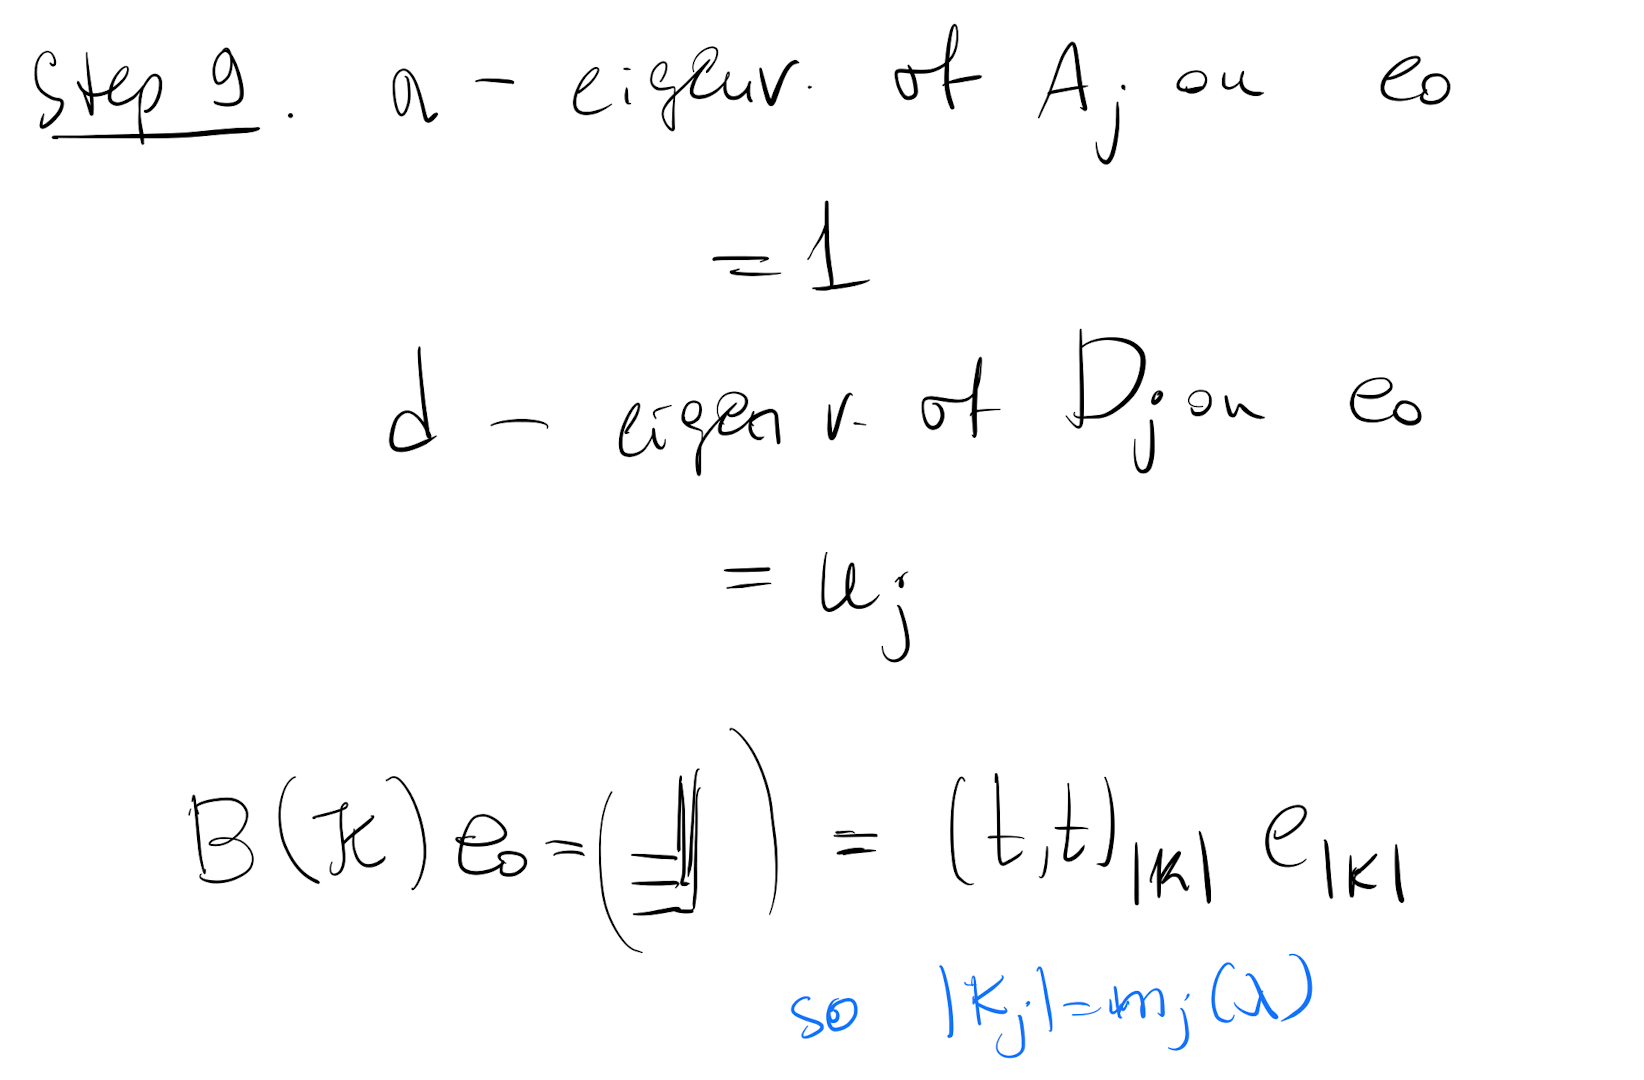 Step 9. a - eigenv. of A_j on e_0
= 1
d - eigen v. of D_j on e_0
= u_j
B(K) e_0 = ( ) = (t,t)_{|K|} e_{|K|}
so |K_j| = m_j(λ)